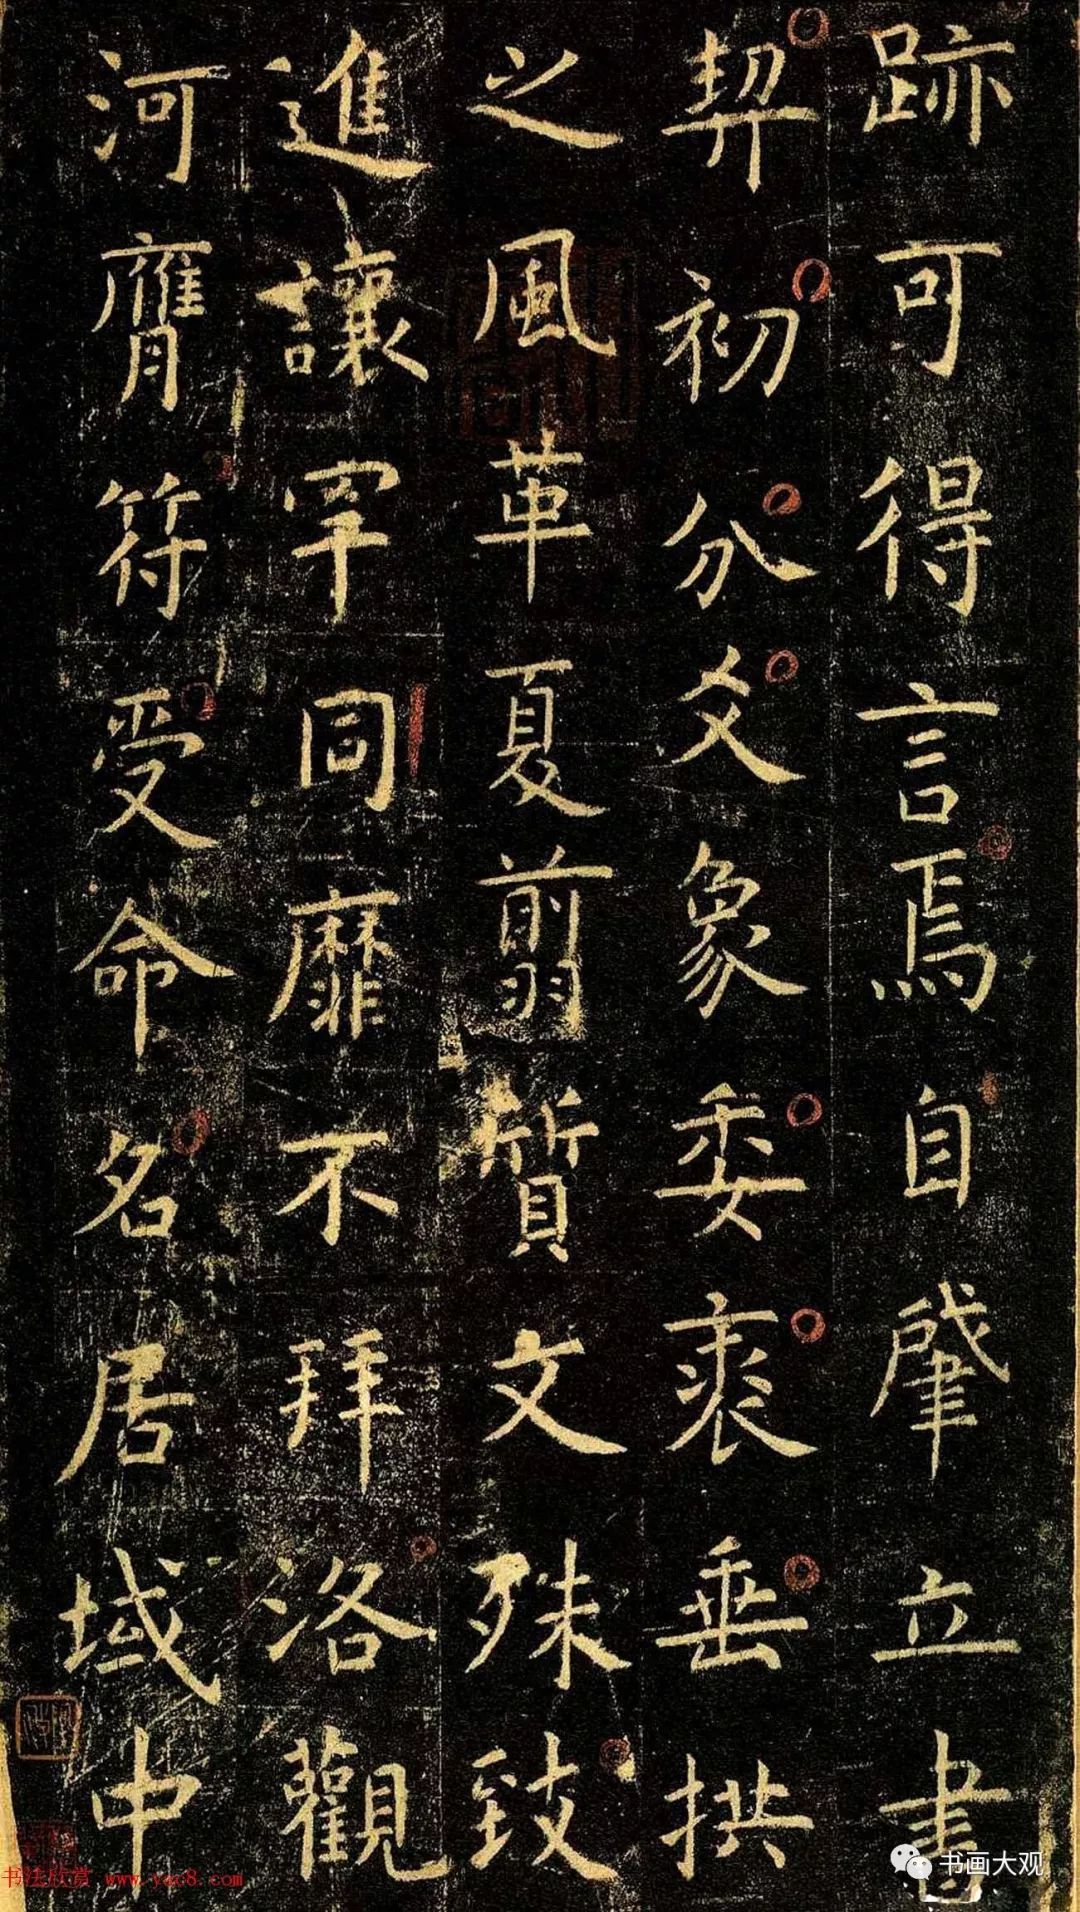 跡可得言焉自肇立書
契初分爻象委裘垂拱
之風革夏翦質文殊致
進讓罕同靡不拜洛觀
河膺符受命名居域中
书画大观
书法欣赏 www.yac8.com